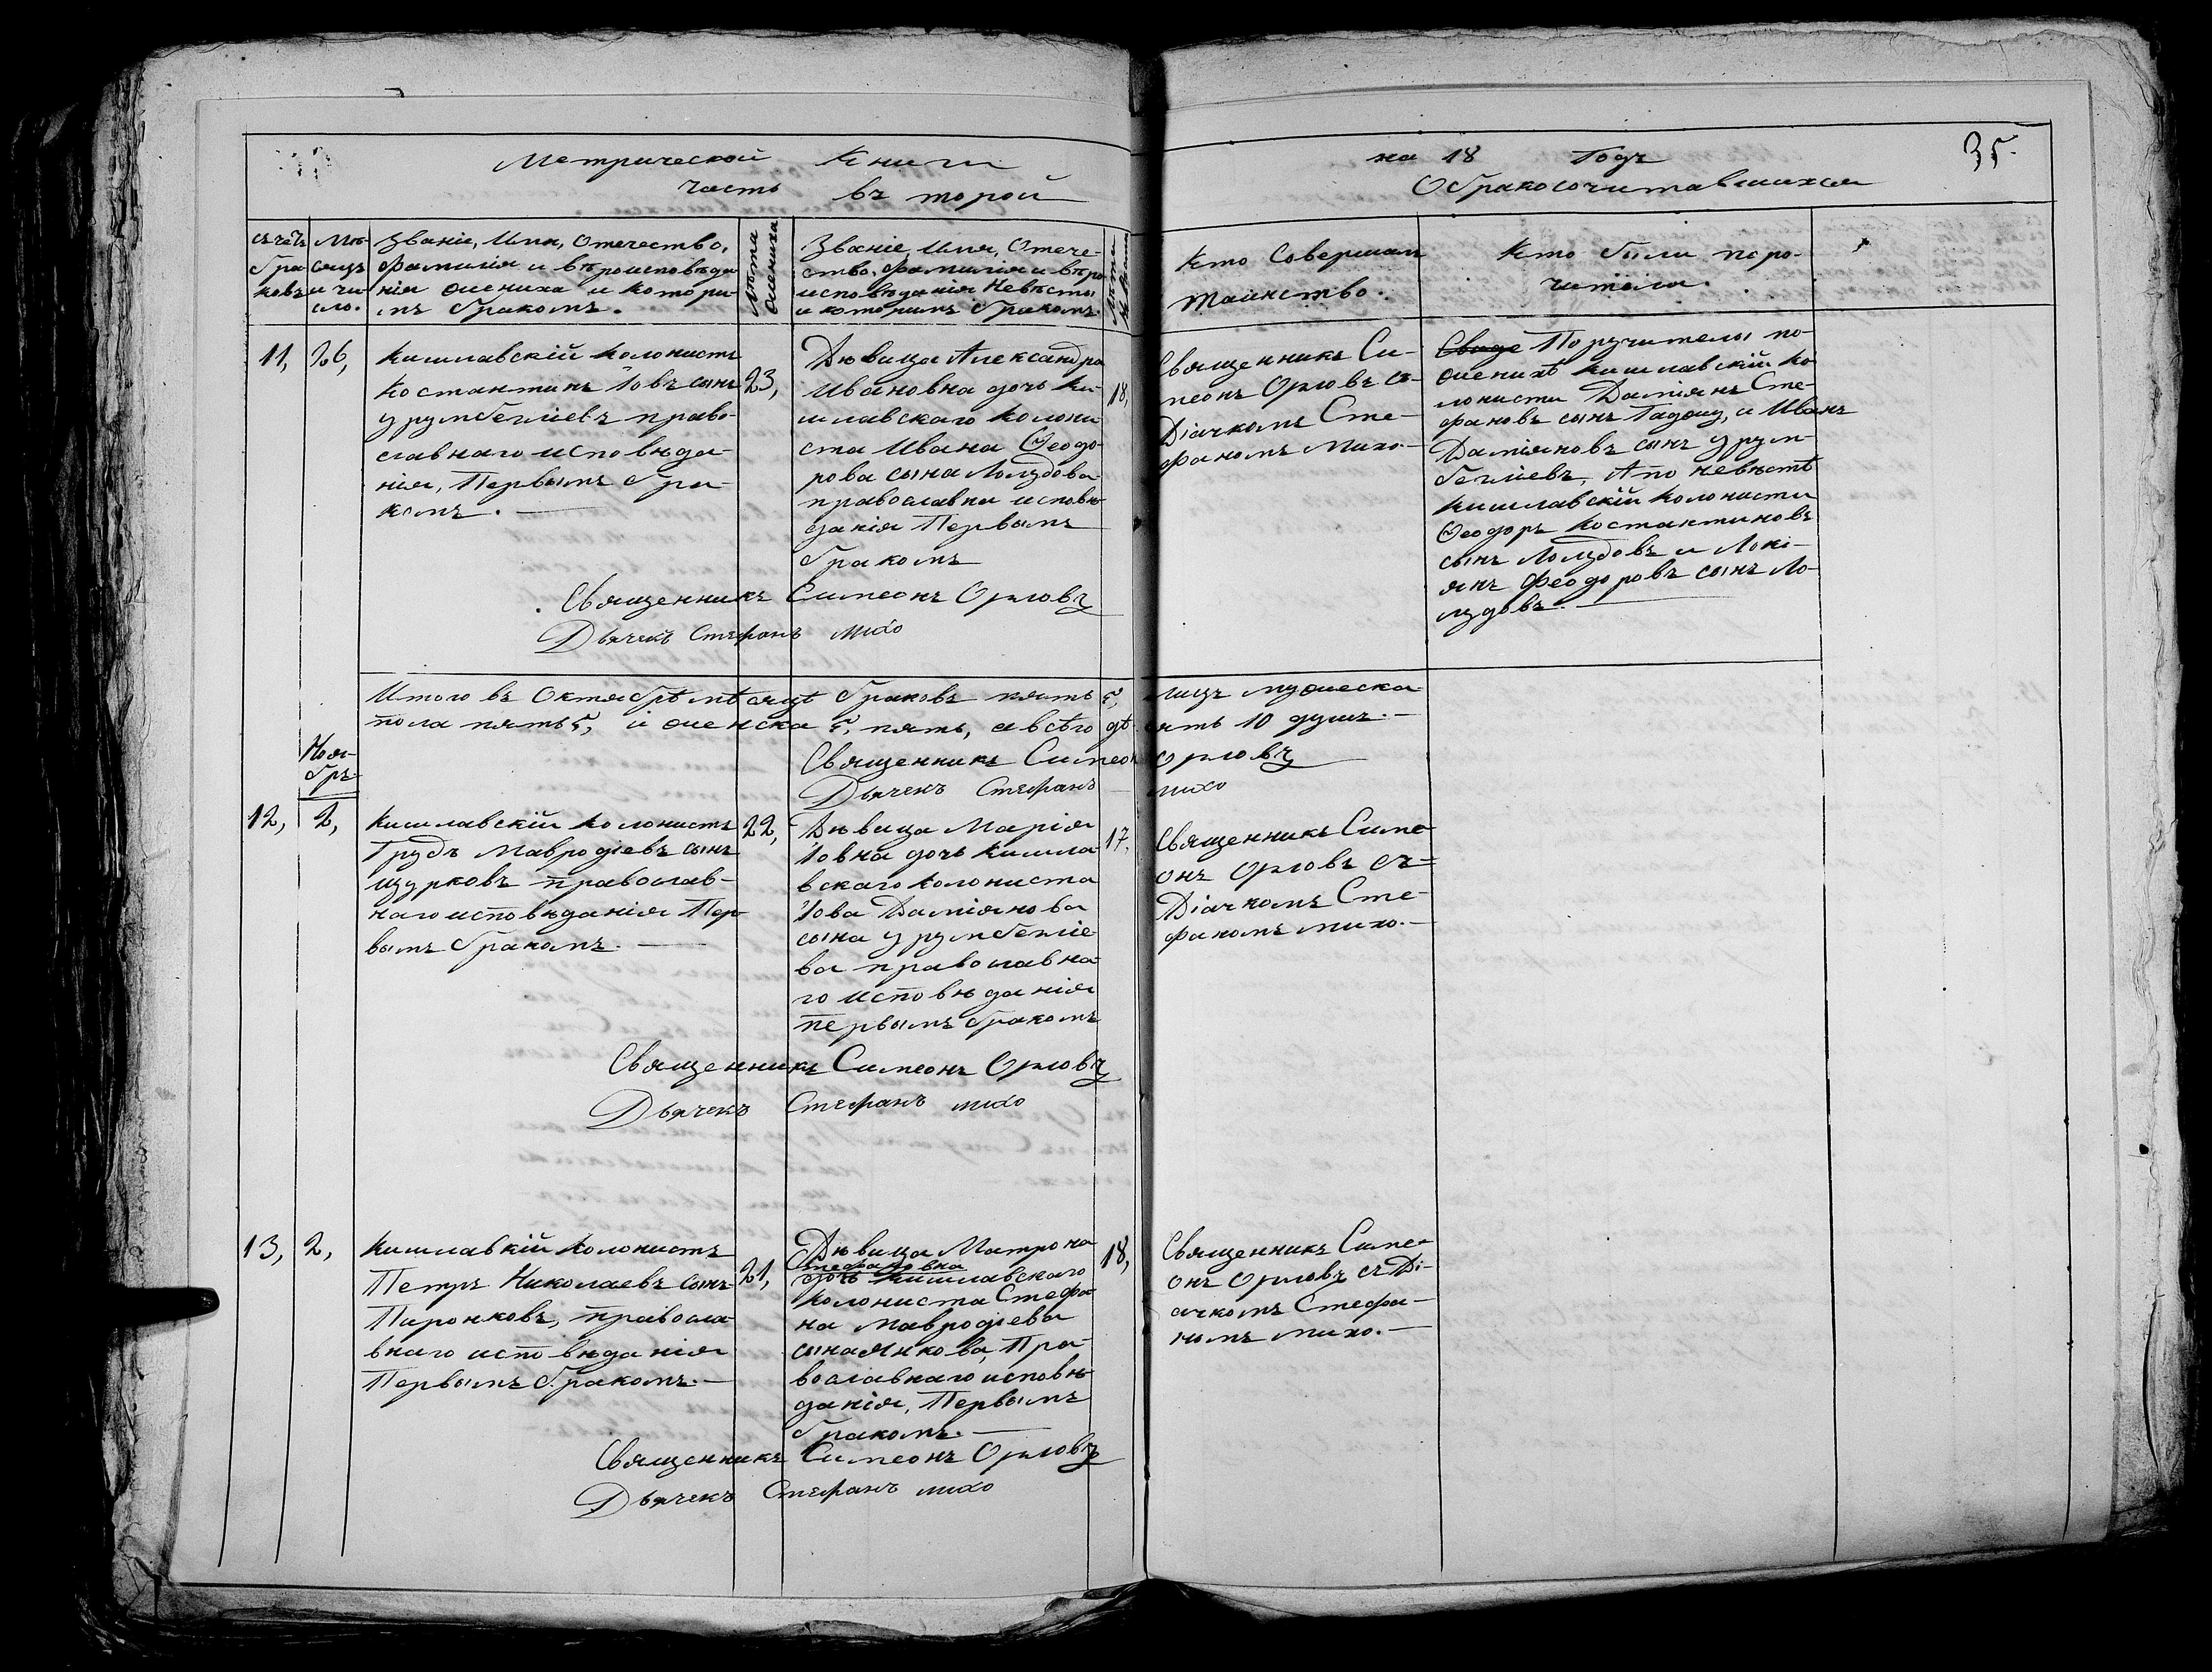 Метрической Книги
часть вторoй
на 18 Годъ
Обракосочитавшихся
35.
Счетъ браковъ
Мѣсяцъ и число.
Званіе, Имя, Отечество,
Фамилія и вѣроисповѣда
нія жениха и которы
мъ бракомъ.
Лѣта жениха
Званіе, Имя, Отече-
ство, фамилия и вѣро
исповѣданія Невѣсты
и которымъ бракомъ.
Кто Совершал
таинство.
Кто были поро-
чители.
11, 26,
Кишлавскій Колонистъ
Костантинъ Іовъ сынъ
Урумбегліевъ право-
славнаго исповѣда-
нія, Первымъ бра-
комъ.
23,
Дѣвица Александра
Ивановна дочь Ки-
шлавскаго Колони
ста Ивана Ѳеодо-
рова сына Лолудова
православна исповѣ
данія Первымъ
бракомъ
18,
Священникъ Си-
меонъ Орловъ съ-
Діачкомъ Сте-
фаномъ Михо-
Свиде Поручители по-
женихѣ Кишлавскій Ко
лонисти Даміянъ Сте-
фановъ сынъ Гаджи, и Иванъ
Даміяновъ сынъ Урум-
бегліевъ, А по невѣстѣ
Кишлавскій Колонисти
Ѳеодоръ Костантиновъ
сынъ Лолудовъ и Локі-
янъ Феодоровъ сынъ Ло-
лудовъ.
Священникъ Симеонъ Орловъ
Дьячекъ Стефанъ Михо
Итого въ Октябрѣ мѣсяцѣ браковъ пять 5, лицъ мужеска
пола пять 5, и женска 5, пять, а всѣго десять 10 душъ.
Священникъ Симеон Орловъ
Дьячекъ Стефанъ Михо
Ноя-
брь
12, 2,
Кишлавскій Колонистъ
Грудъ Мавродіевъ сынъ
Цурковъ православ-
наго исповѣданія Пер
вымъ бракомъ.
22,
Дѣвица Марія
Іовна дочь Кишла-
вскаго Колониста
Іова Даміянова
сына Урумбегліе
ва православна-
го исповѣданія
первымъ бракомъ
17,
Священникъ Симе-
онъ Орловъ съ=
Діачкомъ Сте-
фаномъ Михо.
Священникъ Симеонъ Орловъ
Дьячекъ Стефанъ Михо
13, 2,
Кишлавкій Колонистъ
Петръ Николаевъ сынъ
Паронковъ, правосла
внаго исповѣданія
Первымъ бракомъ.
21,
Дѣвица Матрона
Стефановна
дочь Кишлавскаго
Колониста Стефа-
на Мавродіева
сына Янкова, Пра-
вославнаго исповѣ
данія, Первымъ
бракомъ.
18,
Священникъ Симе-
онъ Орловъ съ Ді-
ачкомъ Стефа-
номъ Михо.
Священникъ Симеонъ Орловъ
Дьячекъ Стефанъ Михо